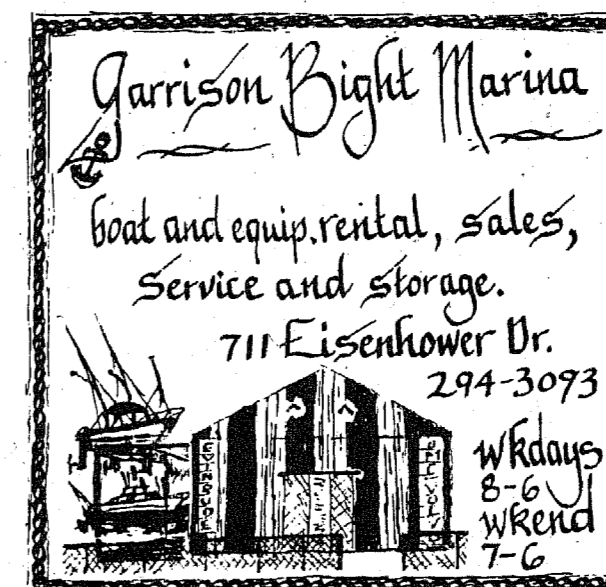 Garrison Bight Marina
boat and equip. rental, sales,
service and storage.
711 Eisenhower Dr.
294-3093
EVINRUDE
wkdays
8-6
wkend
7-6